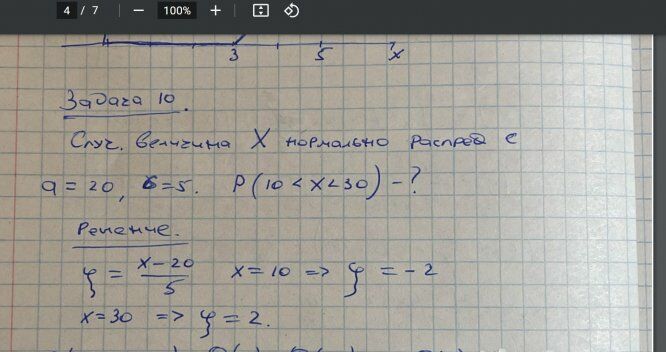 4 / 7 — 100% +
3 5 x
Задача 10.
Случ. величина X нормально распред с
a = 20, σ = 5. P(10 < x < 30) - ?
Решение.
ξ = x-20/5 x = 10 => ξ = -2
x = 30 => ξ = 2.